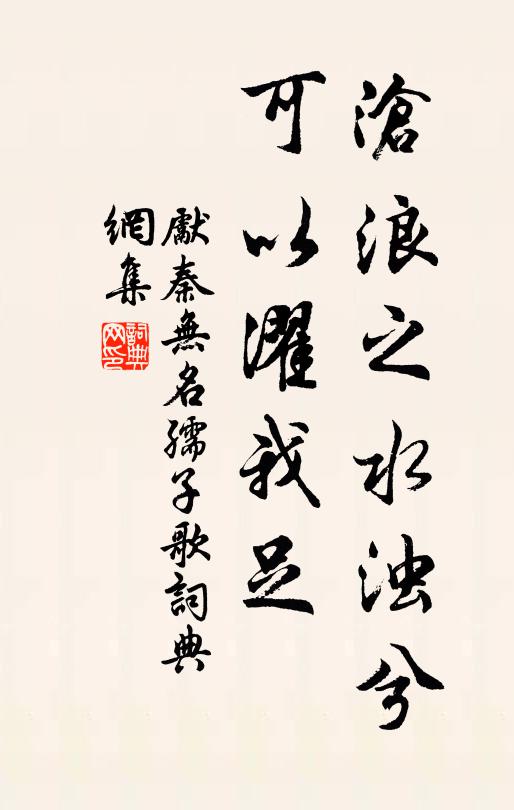 滄浪之水浊兮
可以濯我足
獻秦無名孺子歌詞典
網集
詞典
网印